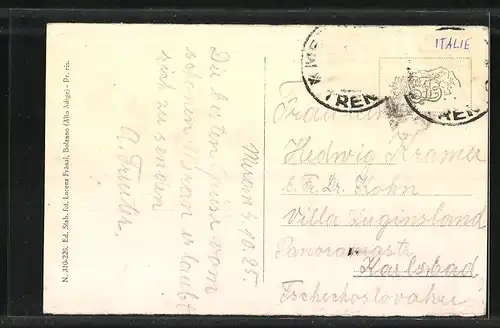 ITALIE
TREN
TREN
Fräulein
Hedwig Kramer
b. Fr. Dr. Kohn
Villa Zuginsland
Panoramastr
Karlsbad
Tschechoslovakei
Meran 4.10.25.
Die besten Grüsse vom
schönen Meran erlaubt
sich zu senden
A.
N. 310-220, Ed. Stab. fot. Lorenz Fränzl, Bolzano (Alto Adige) - Dr. ris.